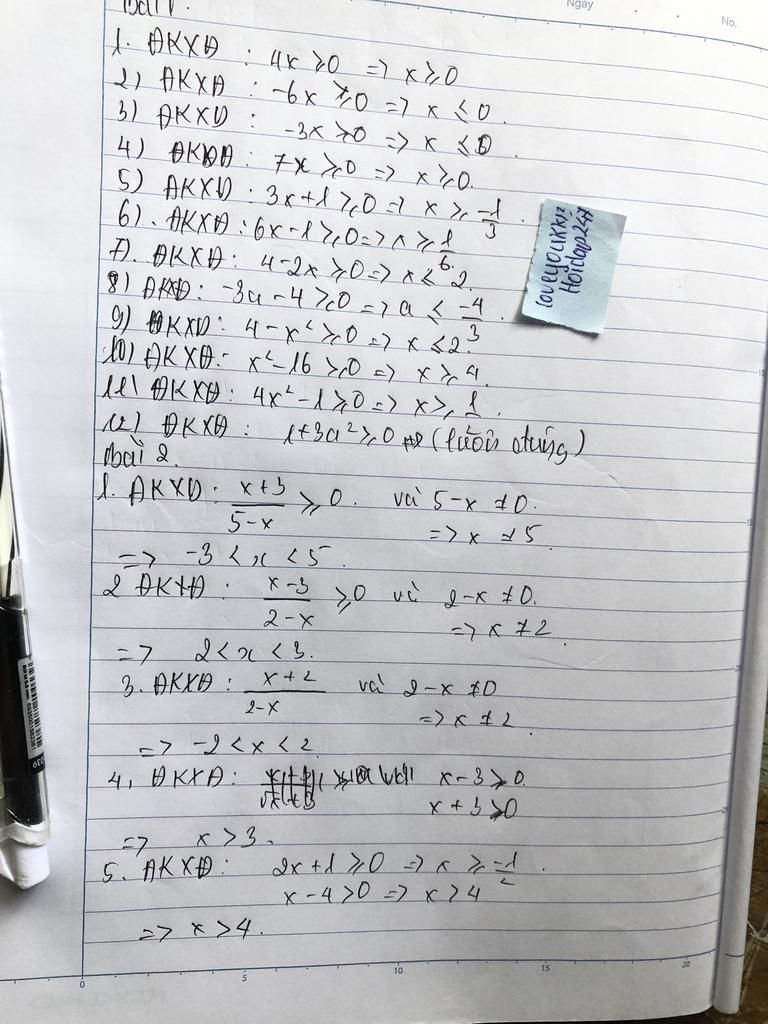 Bài 1.
Ngày
No.
1. ĐKXĐ : 4x ≥ 0 => x ≥ 0
2) ĐKXĐ : -6x ≥ 0 => x ≤ 0.
3) ĐKXĐ : -3x ≥ 0 => x ≤ 0.
4) ĐKXĐ : 7x ≥ 0 => x ≥ 0.
5) ĐKXĐ : 3x+1 ≥ 0 => x ≥ -1/3.
6). ĐKXĐ : 6x-1 ≥ 0 => x ≥ 1/6
7). ĐKXĐ : 4-2x ≥ 0 => x ≤ 2.
8) ĐKXĐ : -3a-4 ≥ 0 => a ≤ -4/3.
9) ĐKXĐ : 4-x² ≥ 0 => x ≤ 2
10) ĐKXĐ : x²-16 ≥ 0 => x ≥ 4.
11) ĐKXĐ : 4x²-1 ≥ 0 => x ≥ 1.
12) ĐKXĐ : 1+3a² ≥ 0 => (luôn đúng)
loveyoukk12
Hoidap247
Bài 2.
1. ĐKXĐ : x+3/5-x ≥ 0. và 5-x ≠ 0.
=> x ≠ 5.
=> -3 < x < 5.
2 ĐKXĐ : x-3/2-x ≥ 0 và 2-x ≠ 0.
=> x ≠ 2.
=> 2 < x < 3.
3. ĐKXĐ : x+2/2-x và 2-x ≠ 0
=> x ≠ 2.
=> -2 < x < 2
4, ĐKXĐ : x-3 ≥ 0.
x+3 ≥ 0
=> x > 3.
5. ĐKXĐ : 2x+1 ≥ 0 => x ≥ -1/2.
x-4 > 0 => x > 4
=> x > 4.
0 5 10 15 20